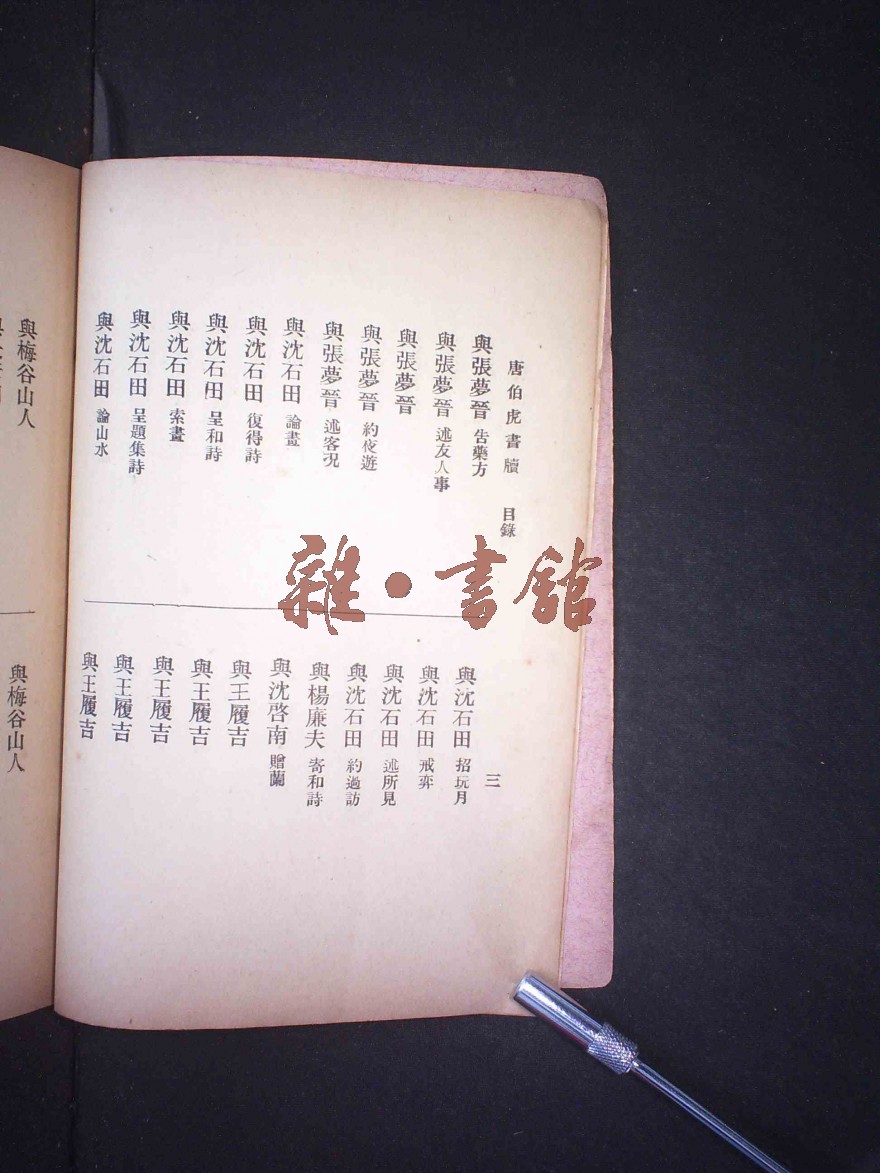 唐伯虎書牘 目錄
三
與張夢晉 告藥方
與張夢晉 述友人事
與張夢晉
與張夢晉 約夜遊
與張夢晉 述客況
與沈石田 論畫
與沈石田 復得詩
與沈石田 呈和詩
與沈石田 索畫
與沈石田 呈題集詩
與沈石田 論山水
與沈石田 招玩月
與沈石田 戒弈
與沈石田 述所見
與沈石田 約過訪
與楊廉夫 寄和詩
與沈啓南 贈蘭
與王履吉
與王履吉
與王履吉
與王履吉
與王履吉
與梅谷山人
與梅谷山人
雜·書館